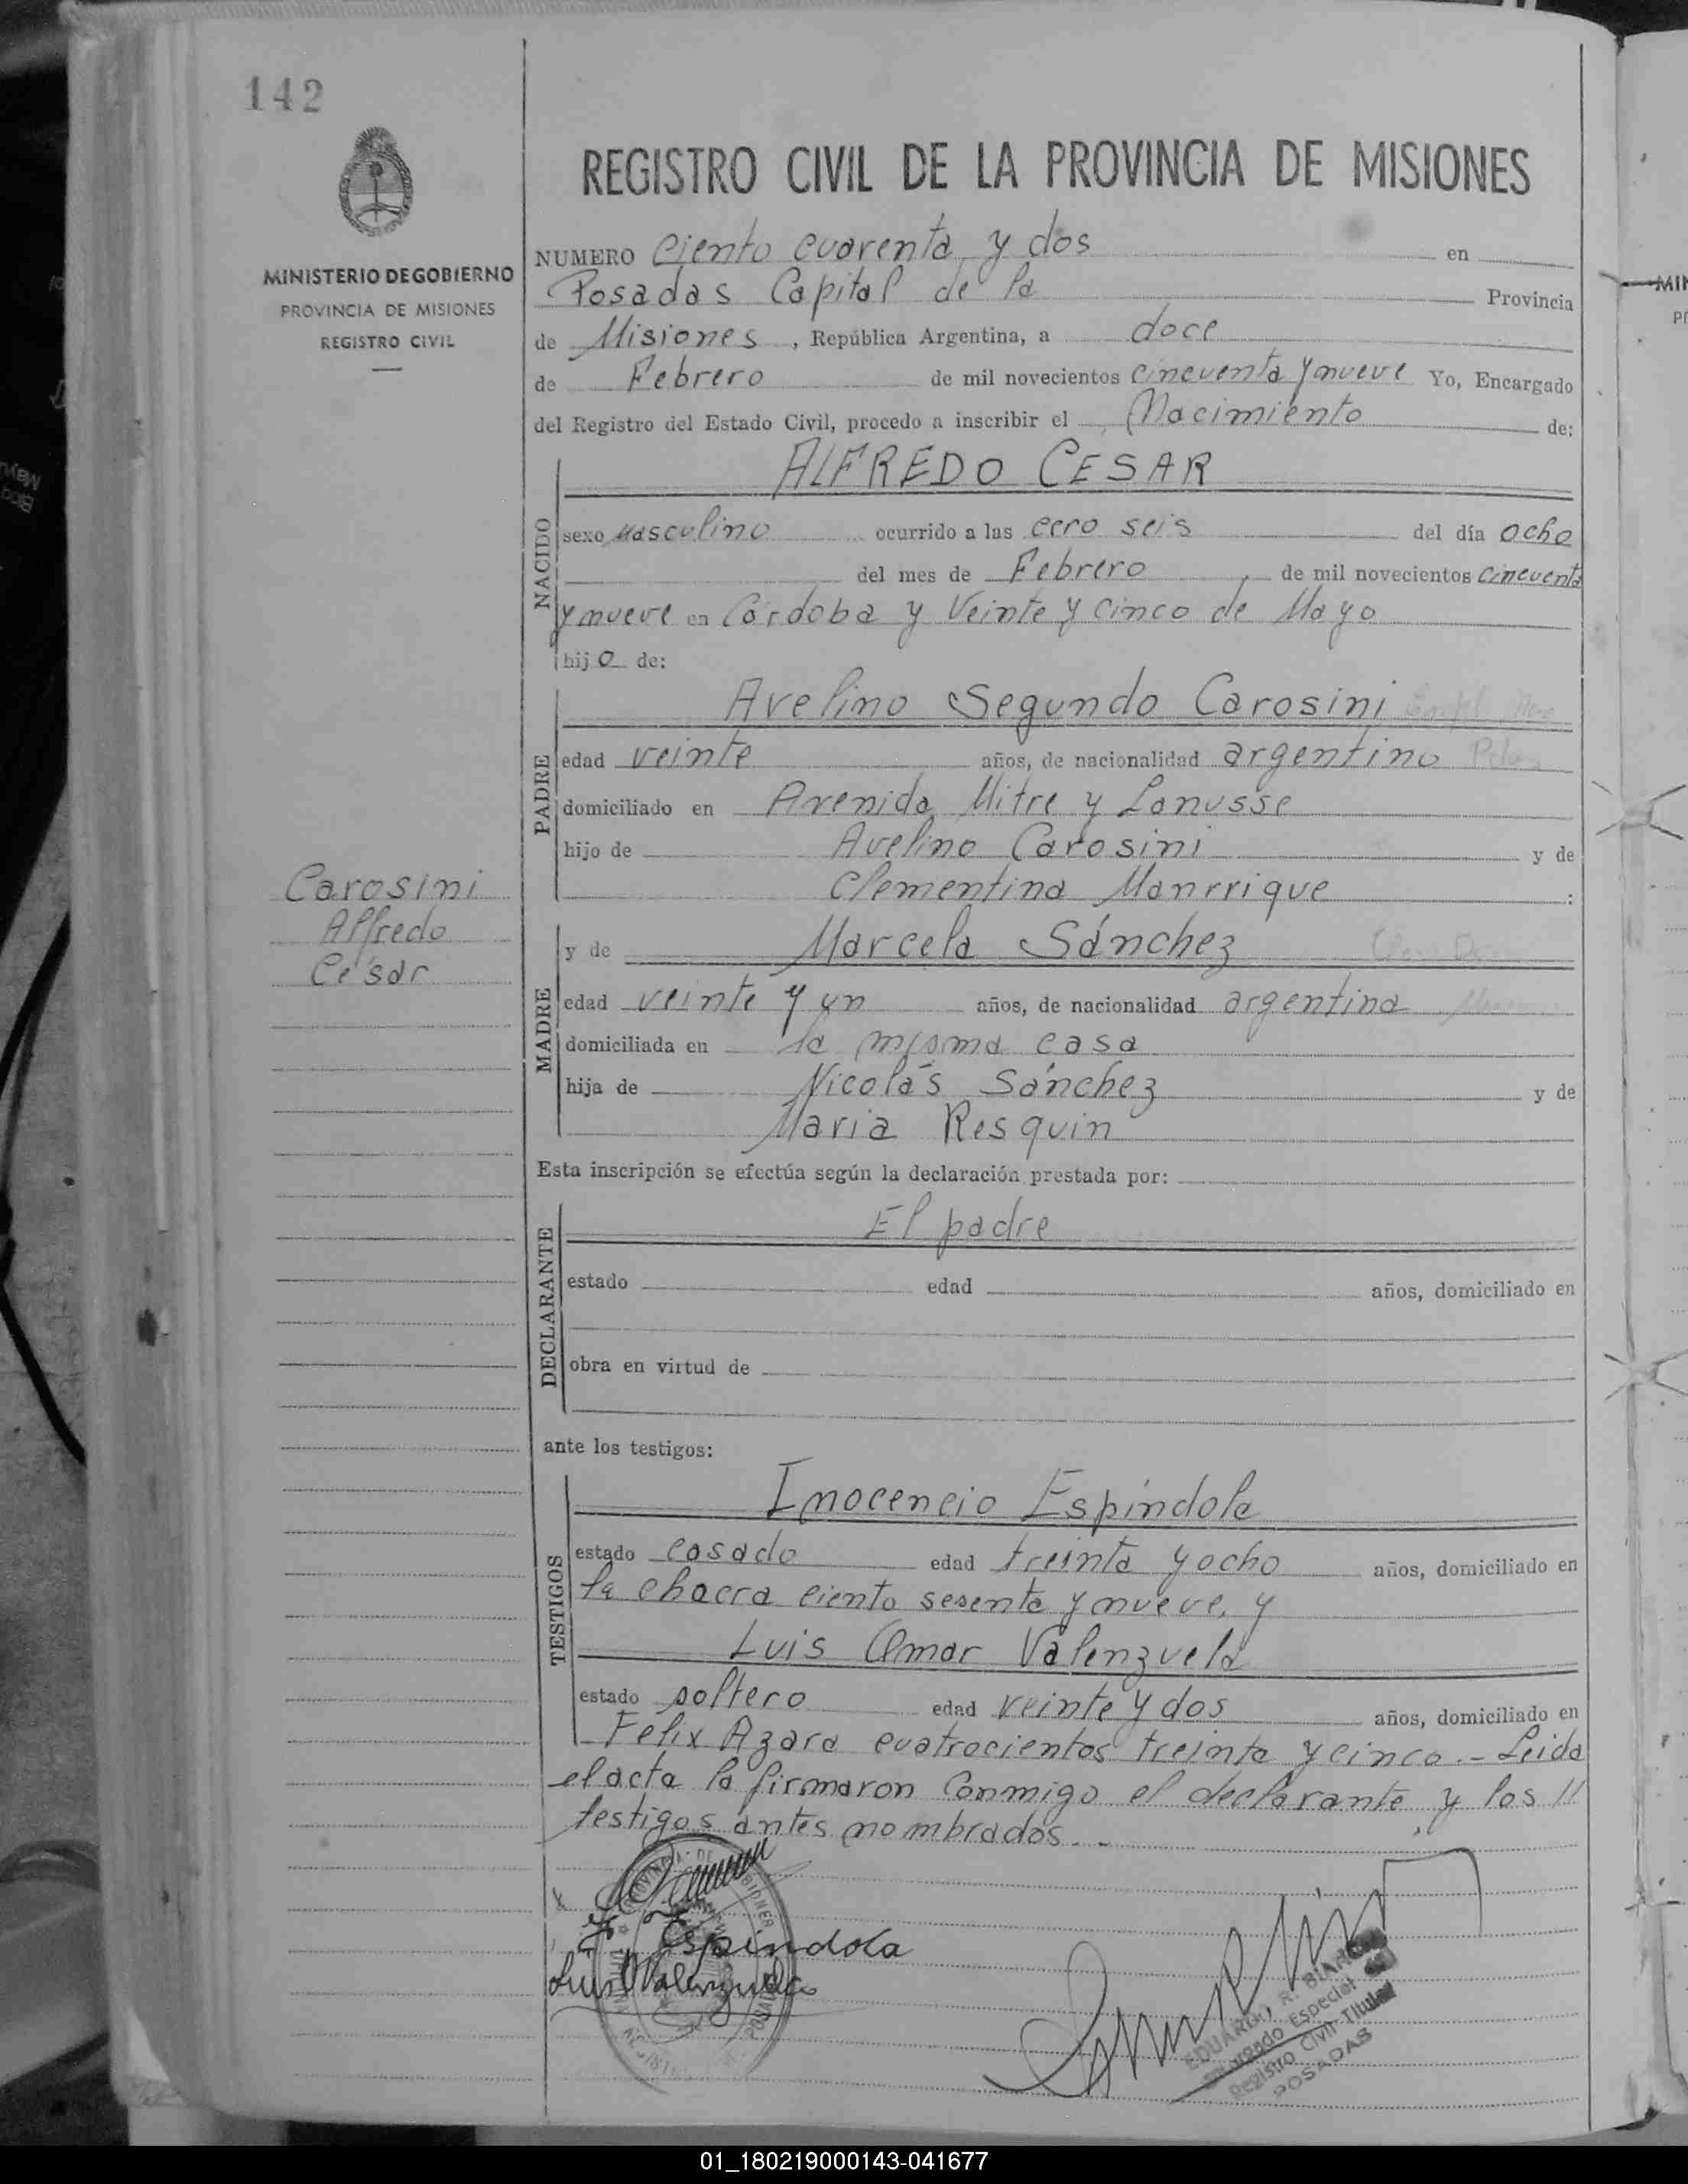 142
REGISTRO CIVIL DE LA PROVINCIA DE MISIONES
MINISTERIO DE GOBIERNO
PROVINCIA DE MISIONES
REGISTRO CIVIL
NUMERO Ciento cuarenta y dos en
Posadas Capital de la Provincia
de Misiones, República Argentina, a doce
de Febrero de mil novecientos cincuenta y nueve Yo, Encargado
del Registro del Estado Civil, procedo a inscribir el Nacimiento de:
ALFREDO CESAR
NACIDO
sexo Masculino ocurrido a las cero seis del día ocho
del mes de Febrero de mil novecientos cincuenta
y nueve en Córdoba y Veinte y Cinco de Mayo
hijo de:
Avelino Segundo Carosini
PADRE
edad veinte años, de nacionalidad argentino
domiciliado en Avenida Mitre y Lanusse
hijo de Avelino Carosini y de
Clementina Manrrique :
Carosini
Alfredo
César
y de Marcela Sánchez
MADRE
edad veinte y un años, de nacionalidad argentina
domiciliada en la misma casa
hija de Nicolás Sánchez y de
Maria Resquin
Esta inscripción se efectúa según la declaración prestada por:
El padre
DECLARANTE
estado edad años, domiciliado en
obra en virtud de
ante los testigos:
Inocencio Espíndola
TESTIGOS
estado casado edad treinta y ocho años, domiciliado en
la chacra ciento sesenta y nueve, y
Luis Omar Valenzuela
estado soltero edad veinte y dos años, domiciliado en
Felix Azara cuatrocientos treinta y cinco.- Leida
el acta la firmaron conmigo el declarante y los //
testigos antes nombrados.-
I. Espíndola
Luis O Valenzuela
EDUARDO R.
Encargado Especial
Registro Civil Titular
POSADAS
01_180219000143-041677